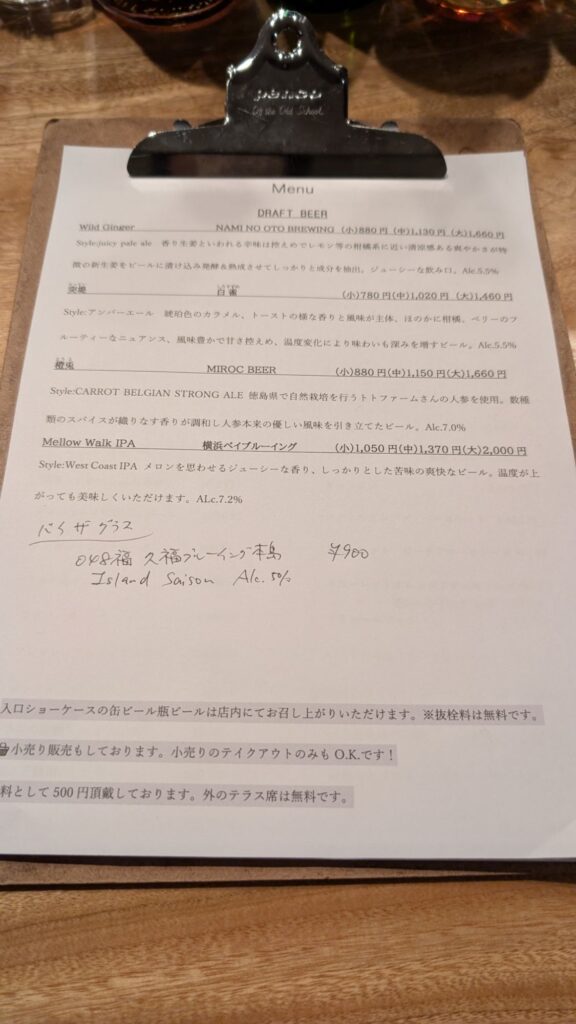 penco
On the Old School.
Menu
DRAFT BEER
Wild Ginger NAMI NO OTO BREWING (小)880円(中)1,130円(大)1,660円
Style:juicy pale ale 香り生姜といわれる辛味は控えめでレモン等の柑橘系に近い清涼感ある爽やかさが特
徴の新生姜をビールに漬け込み発酵&熟成させてしっかりと成分を抽出。ジューシーな飲み口。Alc.5.5%
白雀 (小)780円(中)1,020円 (大)1,460円
Style:アンバーエール 琥珀色のカラメル、トーストの様な香りと風味が主体、ほのかに柑橘、ベリーのフ
ルーティーなニュアンス、風味豊かで甘さ控えめ、温度変化により味わいも深みを増すビール。Alc.5.5%
橙兎 MIROC BEER (小)880円(中)1,150円(大)1,660円
Style:CARROT BELGIAN STRONG ALE 徳島県で自然栽培を行うトトファームさんの人参を使用。数種
類のスパイスが織りなす香りが調和し人参本来の優しい風味を引き立てたビール。Alc.7.0%
Mellow Walk IPA 横浜ベイブルーイング (小)1,050円(中)1,370円(大)2,000円
Style:West Coast IPA メロンを思わせるジューシーな香り、しっかりとした苦味の爽快なビール。温度が上
がっても美味しくいただけます。ALc.7.2%
バイ ザ グラス
048福 久福ブルーイング本島 ¥900
Island Saison Alc.5.0%
入口ショーケースの缶ビール瓶ビールは店内にてお召し上がりいただけます。※抜栓料は無料です。
小売り販売もしております。小売りのテイクアウトのみもO.K.です!
料として500円頂戴しております。外のテラス席は無料です。